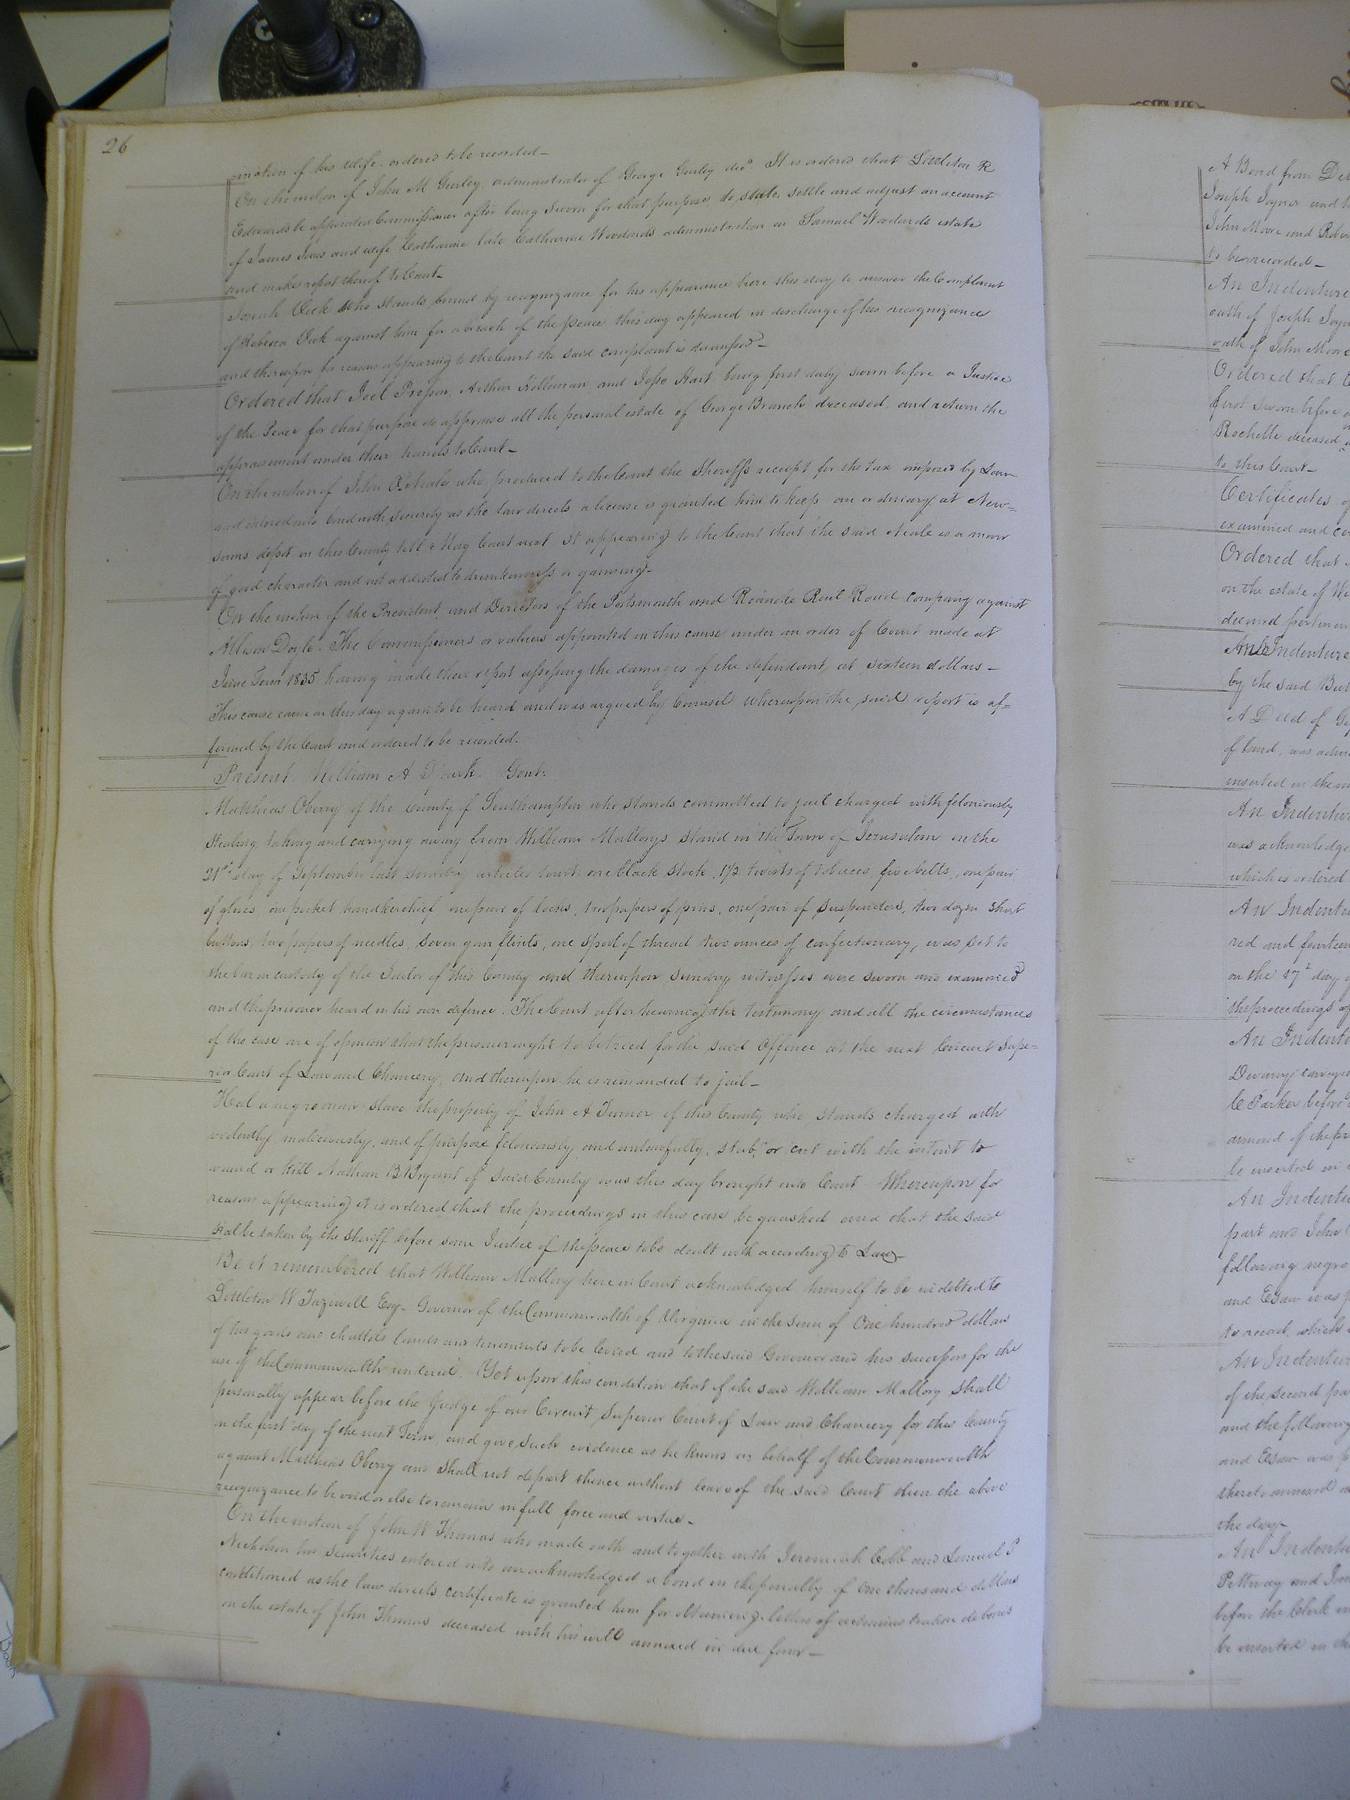 26
ination of his wife. ordered to be recorded—
On the motion of John M Gurley, administrator of George Gurley decd It is ordered that Littleton R
Edwards be appointed Commissioner after being sworn for that purpose to state, settle and adjust an account
of James Ives and wife Catharine late Catharine Woodards administration on Samuel Woodards estate
and make report thereof to Court—
who stands bound by recognizance for his appearance here this day to answer the Complaint
of Rebecca against him for a breach of the peace this day appeared in discharge of his recognizance
and thereupon for reasons appearing to the Court the said complaint is dismissed—
Ordered that Joel Arthur and Jesse Hart being first duly sworn before a Justice
of the Peace for that purpose do appraise all the personal estate of George Branch deceased, and return the
appraisement under their hands to Court—
On the motion of John who produced to the Court the Sheriffs receipt for the tax imposed by Law
and entered into bond with security as the law directs a license is granted him to keep an ordinary at New=
soms depot in this County till May Court next it appearing to the Court that the said Neale is a man
of good character and not addicted to drunkenness or gaming—
On the motion of the President and Directors of the Portsmouth and Roanoke Rail Road company against
Doyle. The Commissioners or valuers appointed in this cause under an order of Court made at
June Term 1835 having made their report assessing the damages of the defendant, at sixteen dollars—
This cause came on this day again to be heard and was argued by Counsel whereupon the said report is af=
firmed by the Court and ordered to be recorded.
Present William A Gent.
Matthews Oberry of the County of Southampton who stands committed to jail charged with feloniously
stealing, taking and carrying away from William Mallorys stand in the Town of Jerusalem on the
21st day of September last sundry articles towit: one black stock, 1½ twists of tobacco, five belts, one pair
of gloves one pocket handkerchief one pair of two papers of pins, one pair of suspenders, two dozen shirt
buttons, two papers of needles, seven gun flints, one spool of thread two ounces of confectionary, was set to
the bar in custody of the Jailor of this County and thereupon sundry witnesses were sworn and examined
and the prisoner heard in his own defence. The Court after hearing the testimony and all the circumstances
of the case are of opinion that the prisoner ought to be tried for the said Offence at the next Circuit Supe=
rior Court of Law and Chancery, and thereupon he is remanded to jail—
Hal a negro man slave the property of John A Turner of this County who stands charged with
violently maliciously, and of purpose feloniously and unlawfully, stab, or cut with the intent to
wound or kill Nathan B Bryant of said County was this day brought into Court Whereupon for
reasons appearing it is ordered that the proceedings in this case be quashed and that the said
Hal be taken by the Sheriff before some Justice of the peace to be dealt with according to Law—
Be it remembered that William Mallory here in Court acknowledged himself to be indebted to
Littleton W Tazewell Esq. Governor of the Commonwealth of Virginia in the sum of One hundred dollars
of his goods and chattels lands and tenements to be levied and to the said Governor and his successors for the
use of the Commonwealth rendered. Yet upon this condition that if the said William Mallory shall
personally appear before the Judge of our Circuit Superior Court of Law and Chancery for this County
on the first day of the next Term, and give such evidence as he knows on behalf of the Commonwealth
against Matthews Oberry and shall not depart thence without leave of the said Court then the above
recognizance to be void or else to remain in full force and virtue—
On the motion of John W Thomas who made oath and together with Jeremiah Cobb and Lemuel P
Nicholson his securities entered into and acknowledged a bond in the penalty of One thousand dollars
conditioned as the law directs certificate is granted him for obtaining letters of administration de bonis
on the estate of John Thomas deceased with his will annexed in due form—
A Bond from
Joseph Joyner and
John Moore and
to be recorded—
An Indenture
oath of Joseph
oath of John Moore
Ordered that
first sworn before
Rochelle deceased
to this Court—
Certificates
examined and
Ordered that
on the estate of
deceased
An Indenture
by the said
A Deed of
of land, was
inserted in the
An Indenture
was acknowledge
which is ordered
An Indenture
red and fourteen
on the 17th day
the proceedings of
An Indenture
Devany
C Parker before
annexed
be inserted in
An Indenture
part and John
following negro
and Esaw was
to record, which
An Indenture
of the second part
and the following
and Esaw was
thereto annexed
the day
An Indenture
Pettway and
before the Clerk
be inserted in the